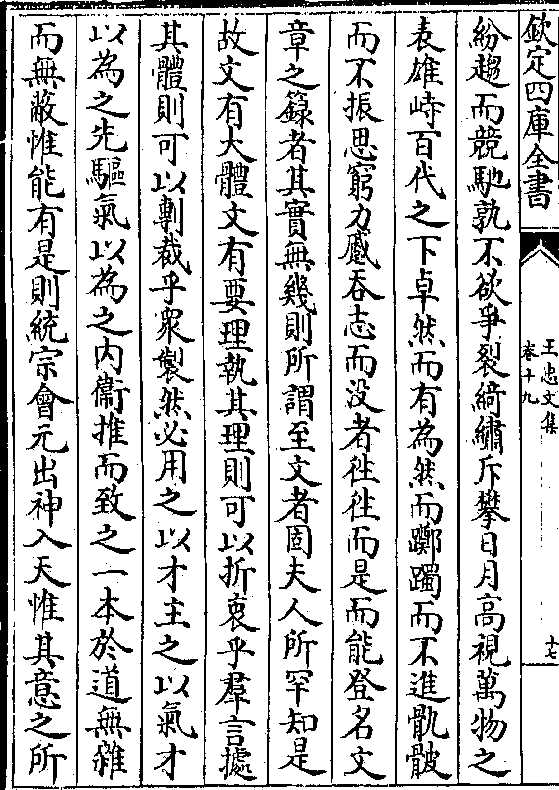 欽定四庫全書
王忠文集
卷十九
十七
紛趨而競馳孰不欲爭裂綺繡斥攀日月高視萬物之
表雄峙百代之下卓然而有為然而躑躅而不進骫骳
而不振思窮力蹙吞志而没者徃徃而是而能登名文
章之籙者其實無幾則所謂至文者固夫人所罕知是
故文有大體文有要理執其理則可以折衷乎羣言據
其體則可以剸裁乎衆製然必用之以才主之以氣才
以為之先驅氣以為之内衞推而致之一本於道無雜
而無敝惟能有是則統宗會元出神入天惟其意之所